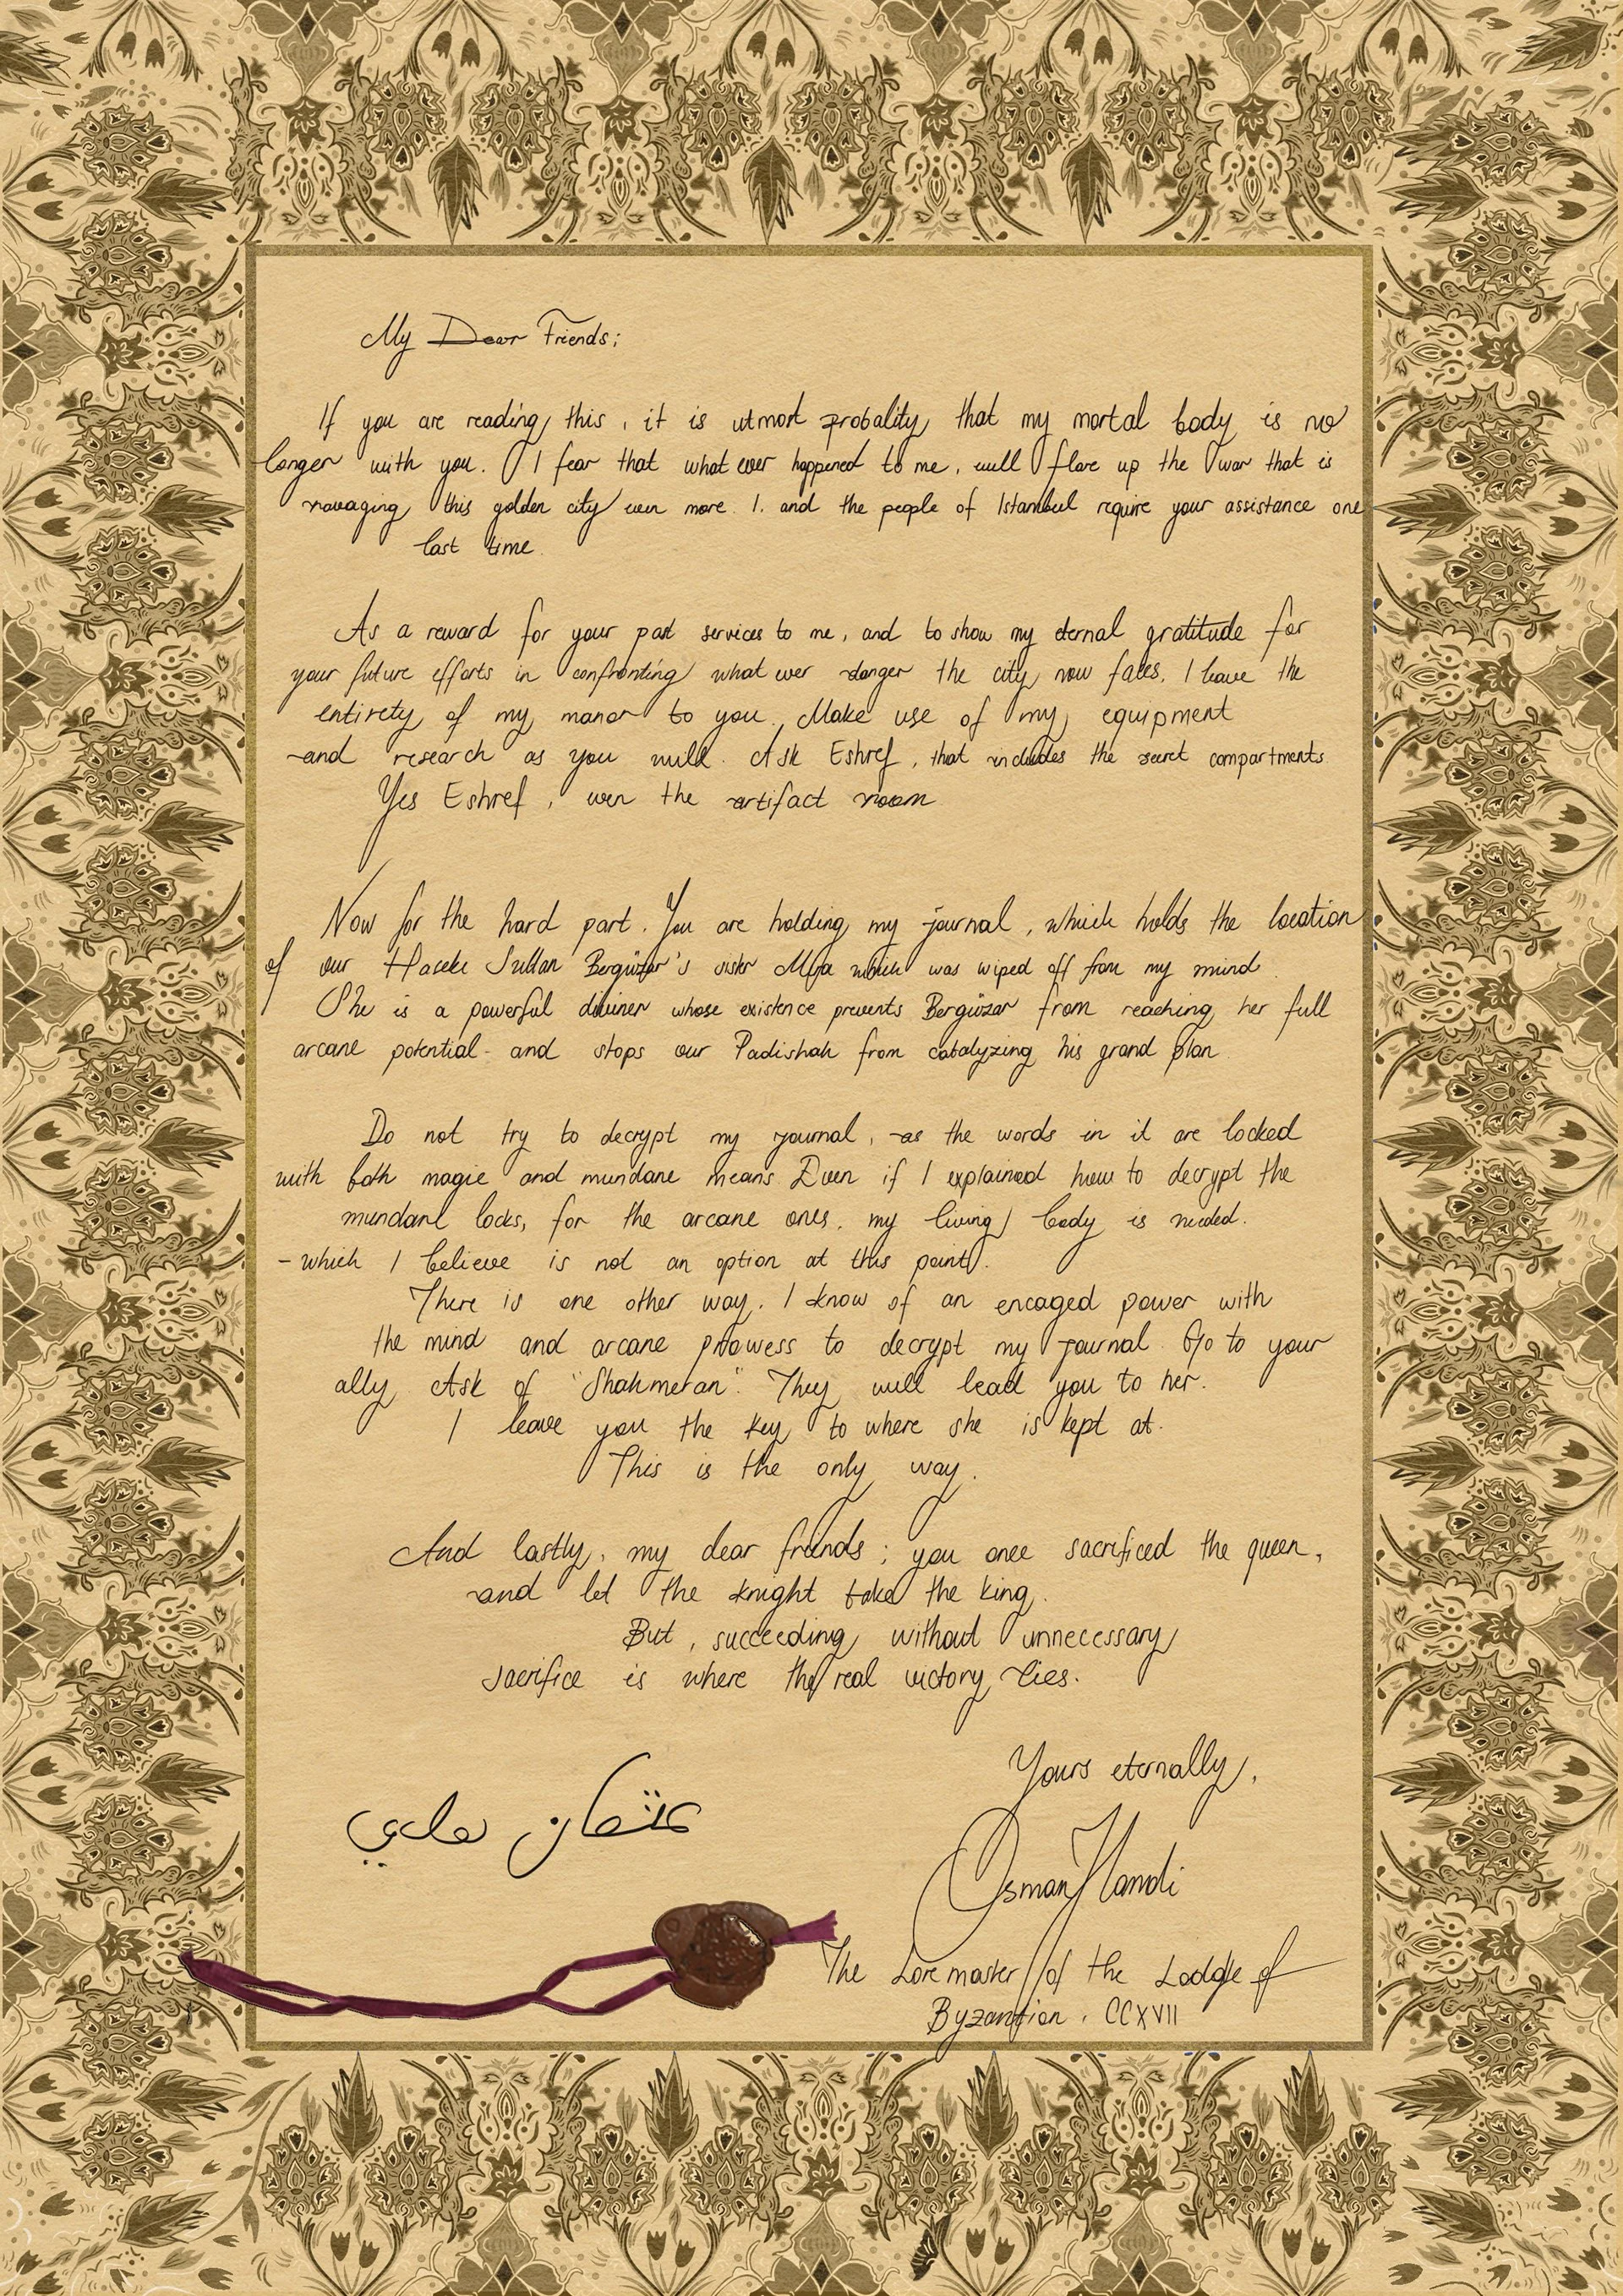 My Dear Friends;
If you are reading this, it is utmost probality that my mortal body is no
longer with you. I fear that what ever happened to me, will flare up the war that is
ravaging this golden city even more. I, and the people of Istanbul require your assistance one
last time.
As a reward for your past services to me, and to show my eternal gratitude for
your future efforts in confronting what ever danger the city now faces, I leave the
entirety of my manor to you. Make use of my equipment
and research as you will. Ask Eshref, that includes the secret compartments.
Yes Eshref, even the artifact room
Now for the hard part. You are holding my journal, which holds the location
of our Haseki Sultan Bergüzar's sister which was wiped off from my mind.
She is a powerful diviner whose existence prevents Bergüzar from reaching her full
arcane potential - and stops our Padishah from catalyzing his grand plan.
Do not try to decrypt my journal, as the words in it are locked
with both magic and mundane means Even if I explained how to decrypt the
mundane locks, for the arcane ones, my living body is needed.
- which I believe is not an option at this point.
There is one other way. I know of an encaged power with
the mind and arcane prowess to decrypt my journal. Go to your
ally, Ask of "Shahmeran". They will lead you to her.
I leave you the key to where she is kept at.
This is the only way.
And lastly, my dear friends; you once sacrificed the queen,
and let the knight take the king.
But, succeeding without unnecessary
sacrifice is where the real victory lies.
Yours eternally,
عثمان هامدي
Osman Hamdi
The Loremaster of the Lodge of
Byzantion, CCXVII